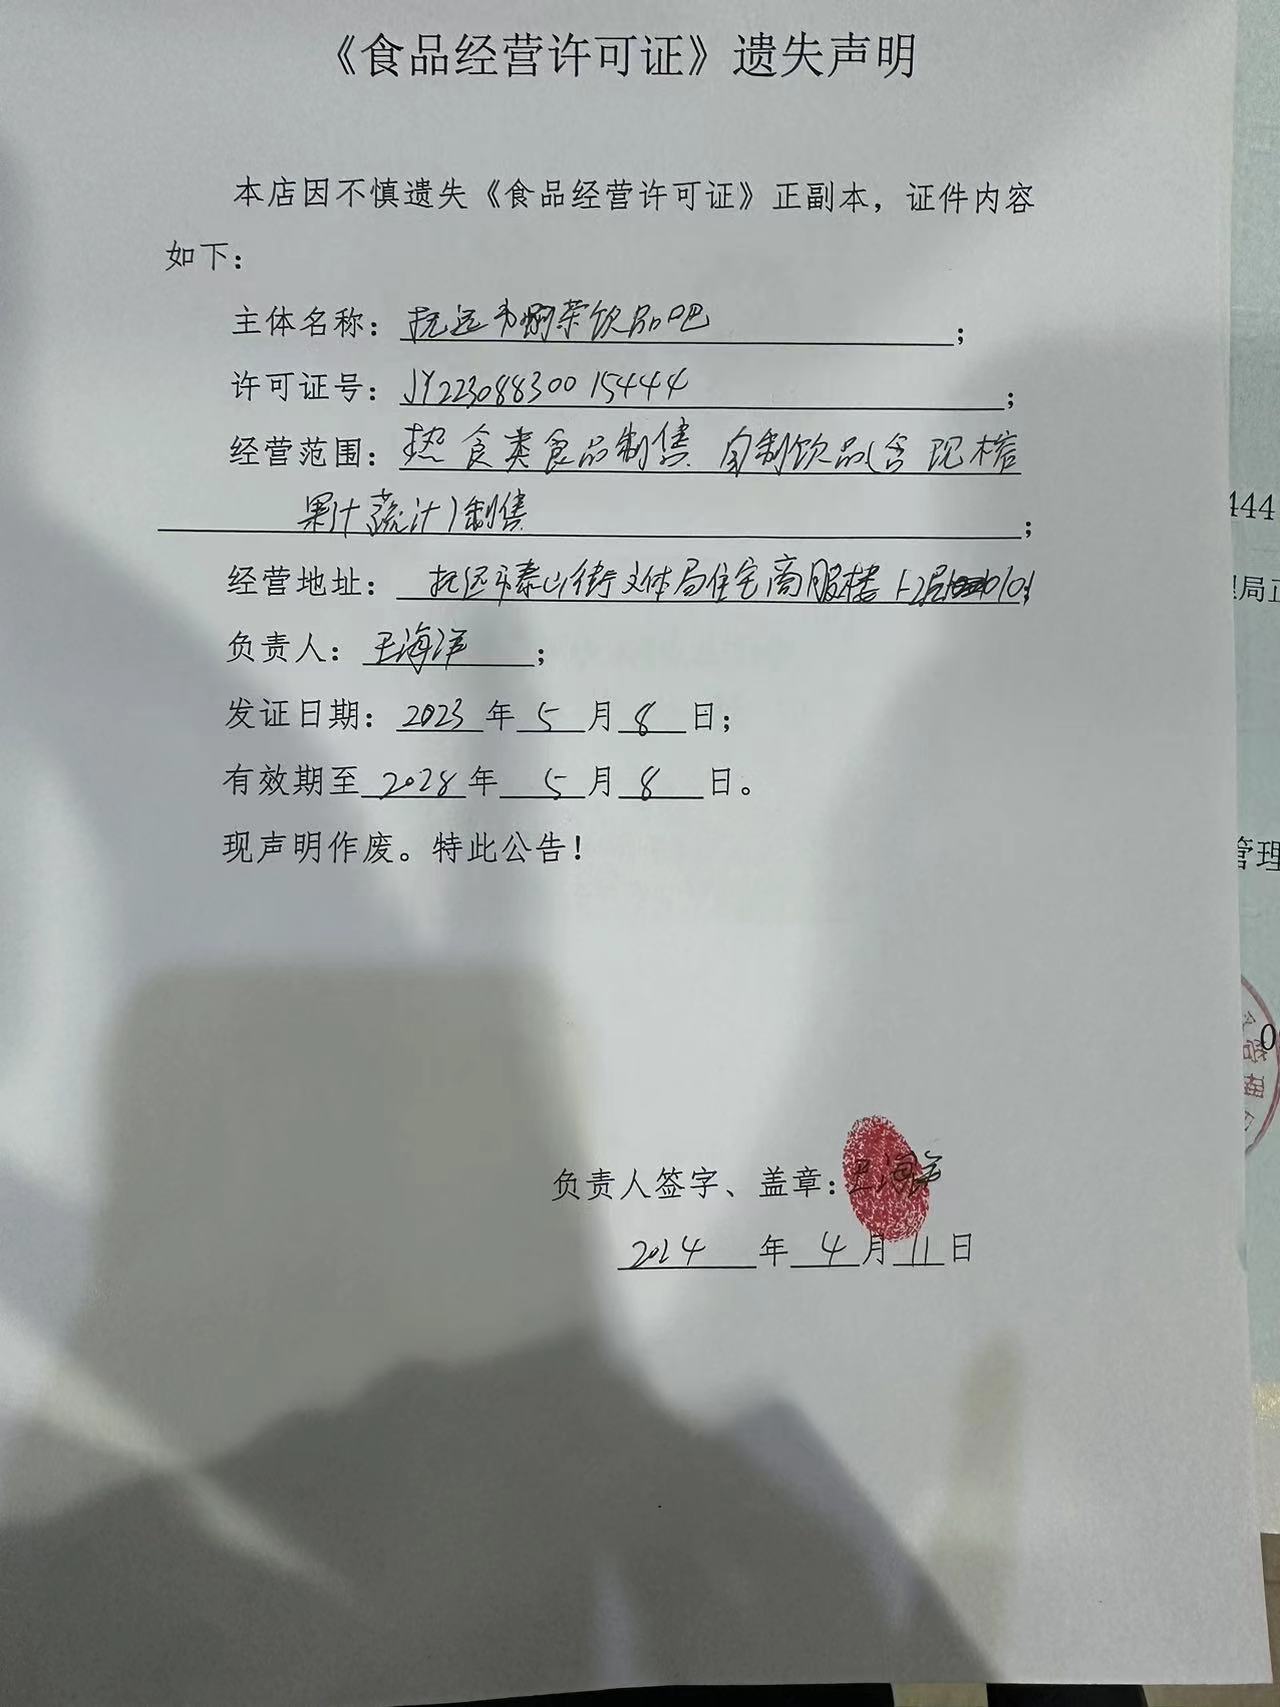 《食品经营许可证》遗失声明
本店因不慎遗失《食品经营许可证》正副本，证件内容
如下：
主体名称：抚远市荣饮品吧；
许可证号：JY22308830015444；
经营范围：热食类食品制售 自制饮品(含现榨
果汁蔬汁)制售；
经营地址：抚远市泰山街文体局住宅商服楼
负责人：王海洋；
发证日期：2023年5月8日；
有效期至2028年5月8日。
现声明作废。特此公告！
负责人签字、盖章：王海洋
2024年4月11日
444
局正
管理
0